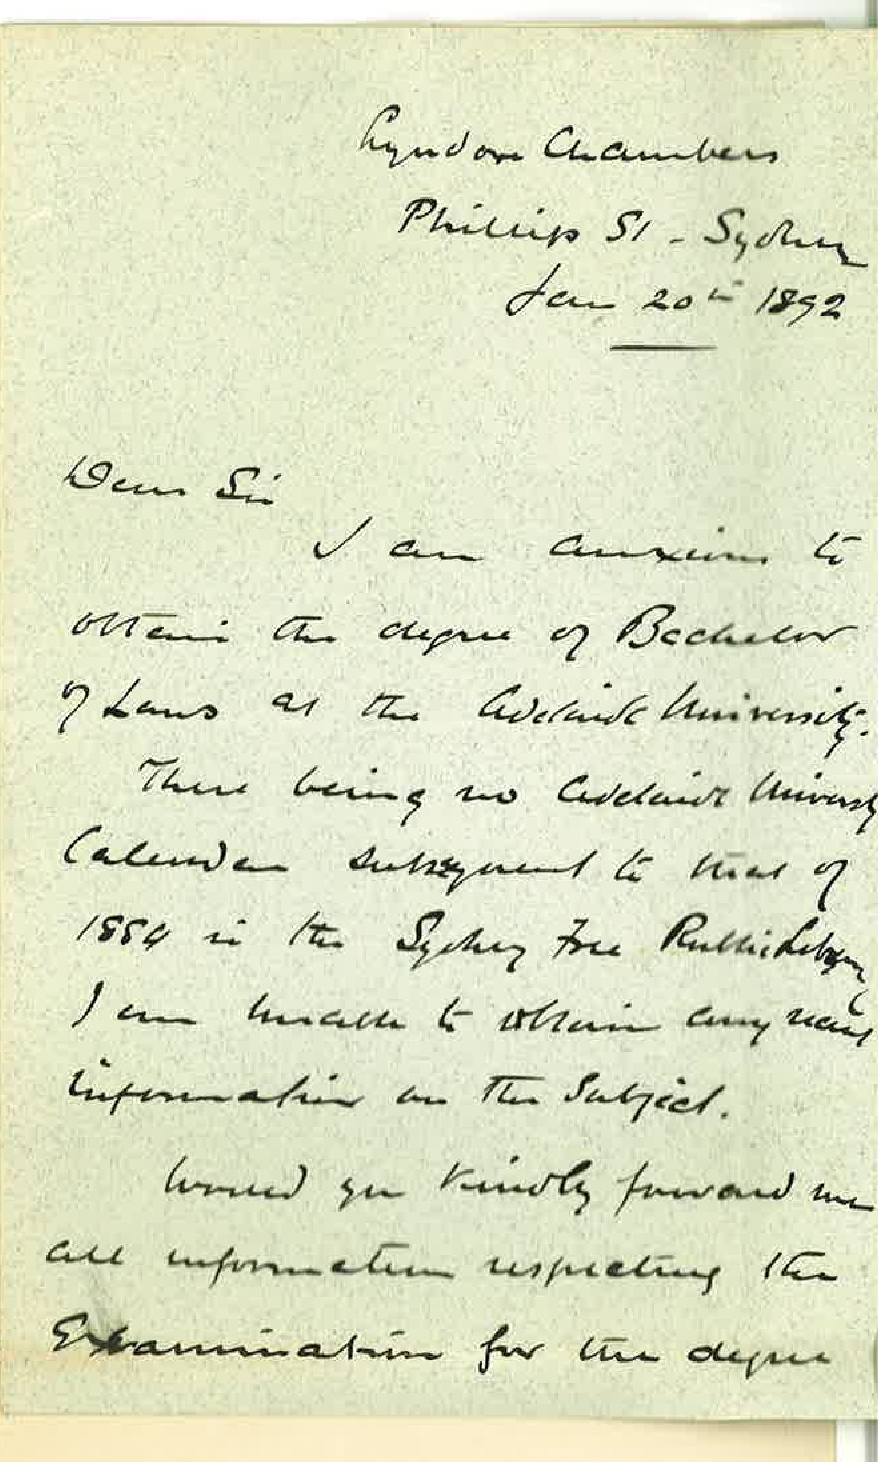 Lyndon Chambers
Phillip St - Sydney
Jan 20th 1892
Dear Sir
I am anxious to
obtain the degree of Bachelor
of Laws at the Adelaide University.
There being no Adelaide University
Calendar subsequent to that of
1884 in the Sydney Free Public Library
I am unable to obtain any
information on the Subject.
Would you kindly forward me
all information respecting the
Examination for the degree